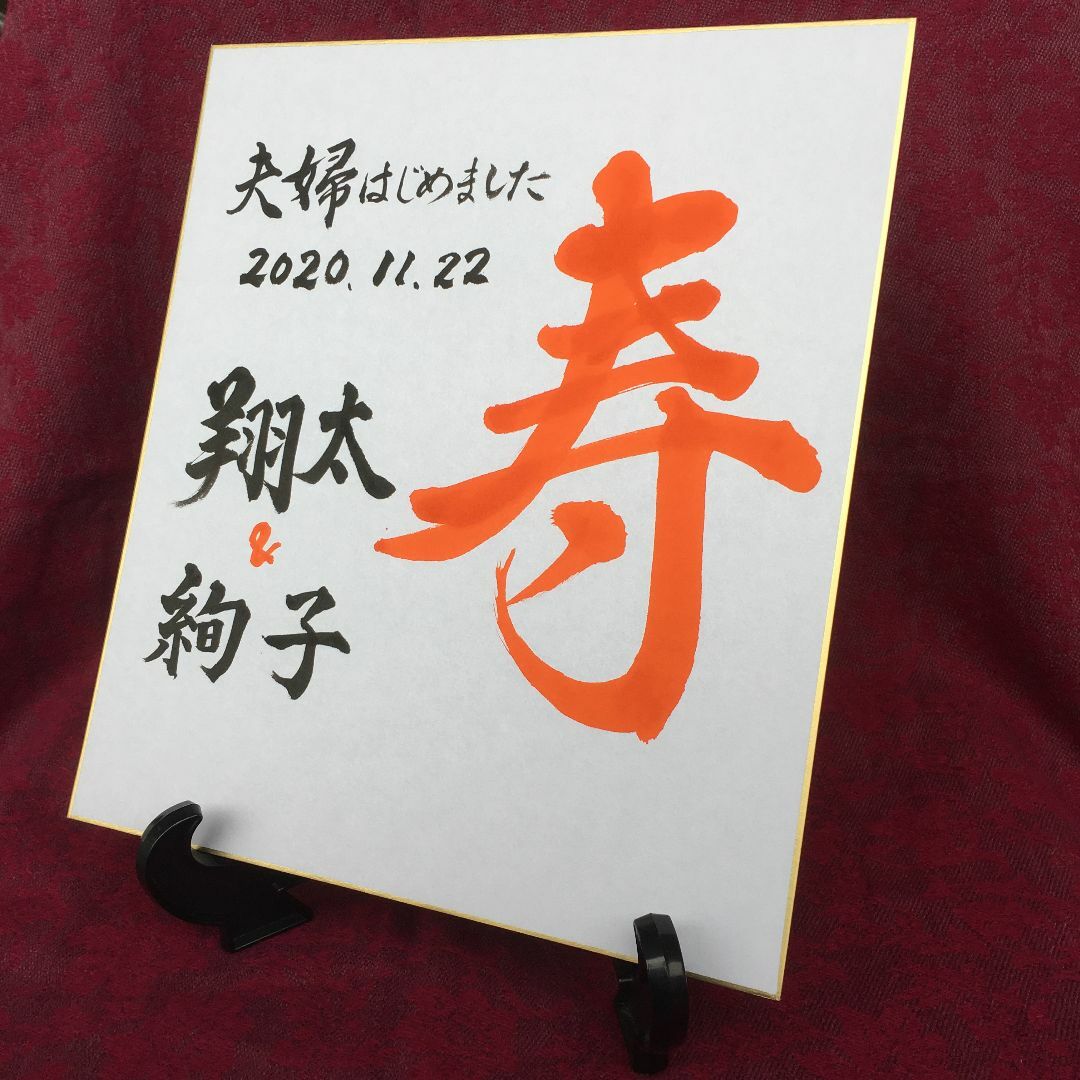 寿
夫婦はじめました
2020.11.22
翔太
&
絢子